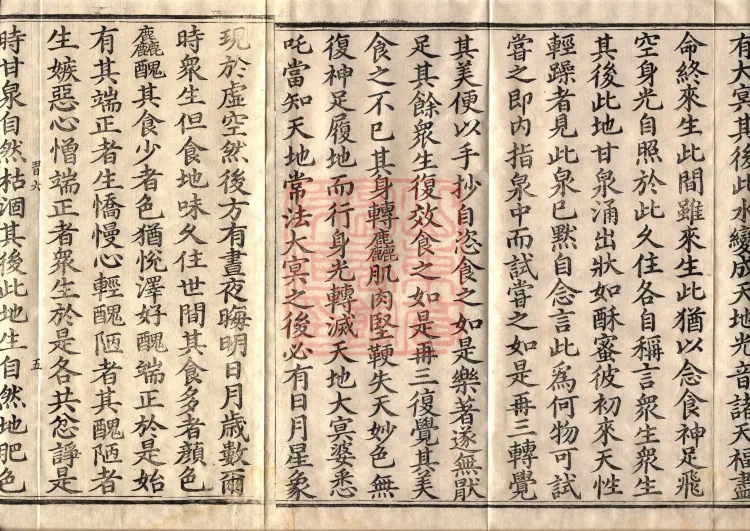 有大冥其後此水變成天地光音諸天福盡
命終來生此間雖來生此猶以念食神足飛
空身光自照於此久住各自稱言衆生衆生
其後此地甘泉涌出狀如酥蜜彼初來天性
輕躁者見此泉已默自念言此爲何物可試
嘗之即內指泉中而試嘗之如是再三轉覺
其美便以手抄自恣食之如是樂著遂無猒
足其餘衆生復效食之如是再三復覺其美
食之不已其身轉麤肌肉堅鞕失天妙色無
復神足履地而行身光轉滅天地大冥婆悉
吒當知天地常法大冥之後必有日月星象
現於虛空然後方有晝夜晦明日月歲數爾
時衆生但食地味久住世間其食多者顏色
麤醜其食少者色猶悅澤好醜端正於是始
有其端正者生憍慢心輕醜陋者其醜陋者
生嫉惡心憎端正者衆生於是各共忿諍是
習六 五
時甘泉自然枯涸其後此地生自然地肥色